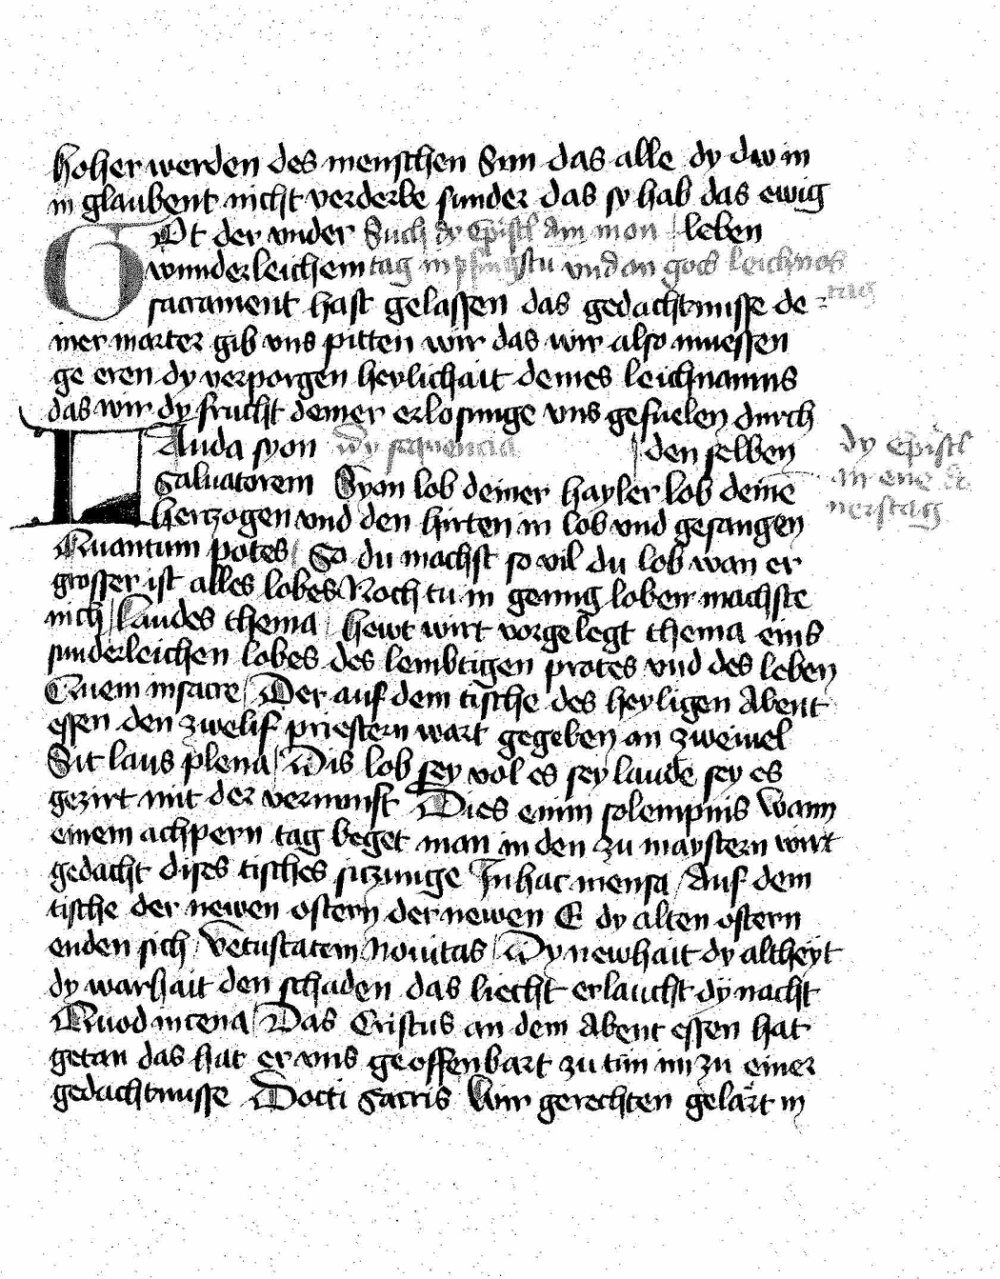 hoher werden des menschen Sun das alle dy dw in
in glaubent nicht verderbe sunder das sy hab das ewig
GOt der vnder Such dy Epistl Am mon leben
wunderleichem tag in pfingstn vnd an gocs leichnos
tag
sacrament hast gelassen das gedachtnusse de-
iner marter gib vns pitten wir das wir also muessen
ge eren dy verporgen heylichait deines leichnamns
das wir dy frucht deiner erlosunge vns gefuelen durch
LAuda syon Dy sequencia den selben
dy Epistl
Saluatorem Syon lob deiner hayler lob deine
in ene
hertzogen vnd den hirten in lob vnd gesangen
nerstag
Quantum potes So du machst so vil du lob wan er
grosser ist alles lobes Noch tu in genug loben machste
nich Laudes thema hewt wirt vorgelegt thema eins
sunderleichen lobes des lembtigen protes vnd des leben
Quem in sacre Der auf dem tische des heyligen Abent
essen den zwelif priestern wart gegeben an zweiuel
Sit laus plena Dis lob sey vol es sey laude sey es
gezirt mit der vernunft Dies enim solempnis Wann
einem achpern tag beget man in den zu maystern wirt
gedacht dises tisches siczunge In hac mensa Auf dem
tische der newen ostern der newen E dy alten ostern
enden sich Vetustatem Nouitas Dy newhait dy altheyt
dy warhait den schaden das liecht erlaucht dy nacht
Quod in cena Das Cristus an dem Abent essen hat
getan das hat er vns geoffenbart zu tun im zu einer
gedachtnusse Docti sacris Wir gerechten gelart in